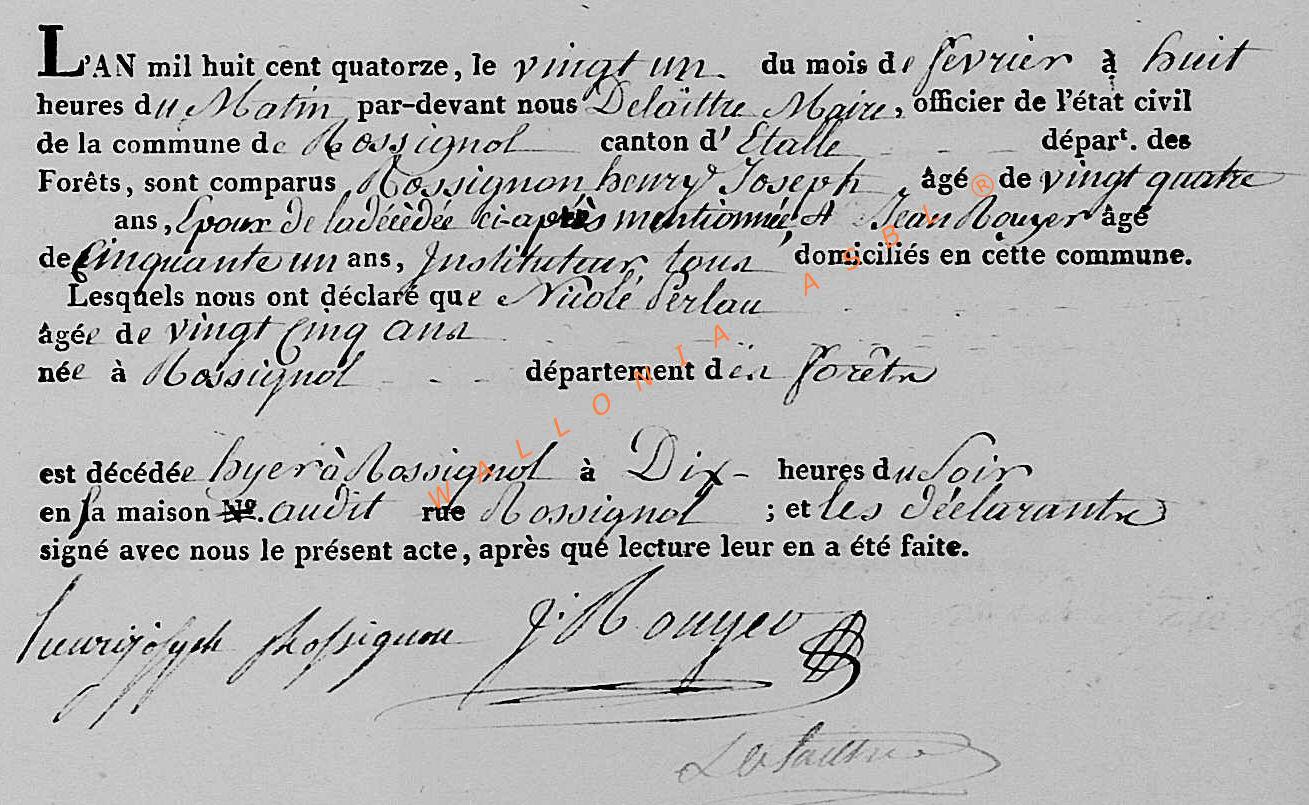 L'AN mil huit cent quatorze, le vingt un du mois de février à huit
heures du Matin par-devant nous Delaittre Maire, officier de l'état civil
de la commune de Rossignol canton d'Etalle départ. des
Forêts, sont comparus Rossignon henry Joseph, âgé de vingt quatre
ans, Epoux de la décèdée ci-après mentionnée et Jean Rouyer âgé
de Cinquante un ans, Instituteur, tous domiciliés en cette commune.
Lesquels nous ont déclaré que Nicole Perlau
âgée de vingt Cinq ans
née à Rossignol département des forêts
est décédée hyer à Rossignol à Dix heures du Soir
en sa maison No. audit rue Rossignol ; et les déclarants
signé avec nous le présent acte, après que lecture leur en a été faite.
henri joseph Rossignon J. Rouyer
Delaittre
WALLONIA ASBL ®